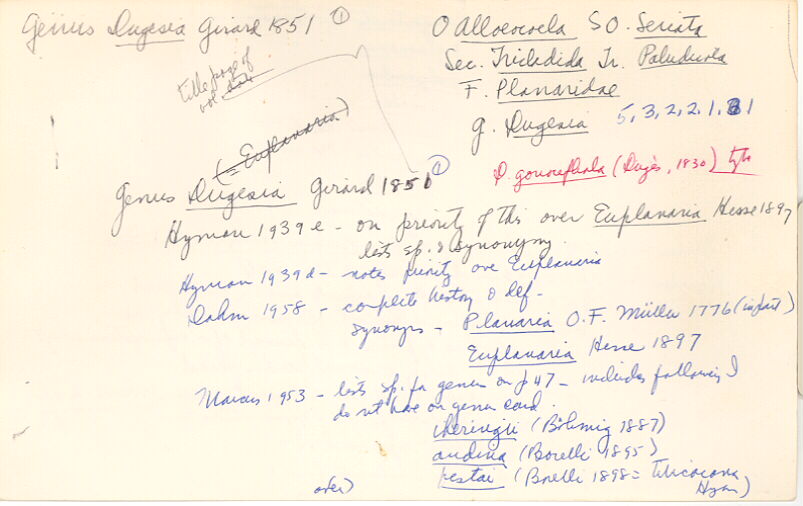 Genus Dugesia Girard 1851 ①
O Alloeocoela SO. Seriata
Sec. Tricladida Tr. Paludicola
F. Planaridae
g. Dugesia 5, 3, 2, 2. 1. 1
title page of
vol. date
(= Euplanaria)
D. gonocephala (Dugès, 1830) type
Genus Dugesia Girard 1850 ①
Hyman 1939 e - on priority of this over Euplanaria Hesse 1897
lists sp. & synonymy.
Hyman 1939d - notes priority over Euplanaria
Dahm 1958 - complete history & def -
synonyms - Planaria O.F. Müller 1776 (in part)
Euplanaria Hesse 1897
Marcus 1953 - lists sp. for genus on p 47 - includes following I
do not have on genus card.
iheringii (Böhmig 1887)
andina (Borelli 1895)
festai (Borelli 1898 = titicacana
Hyman)
over)